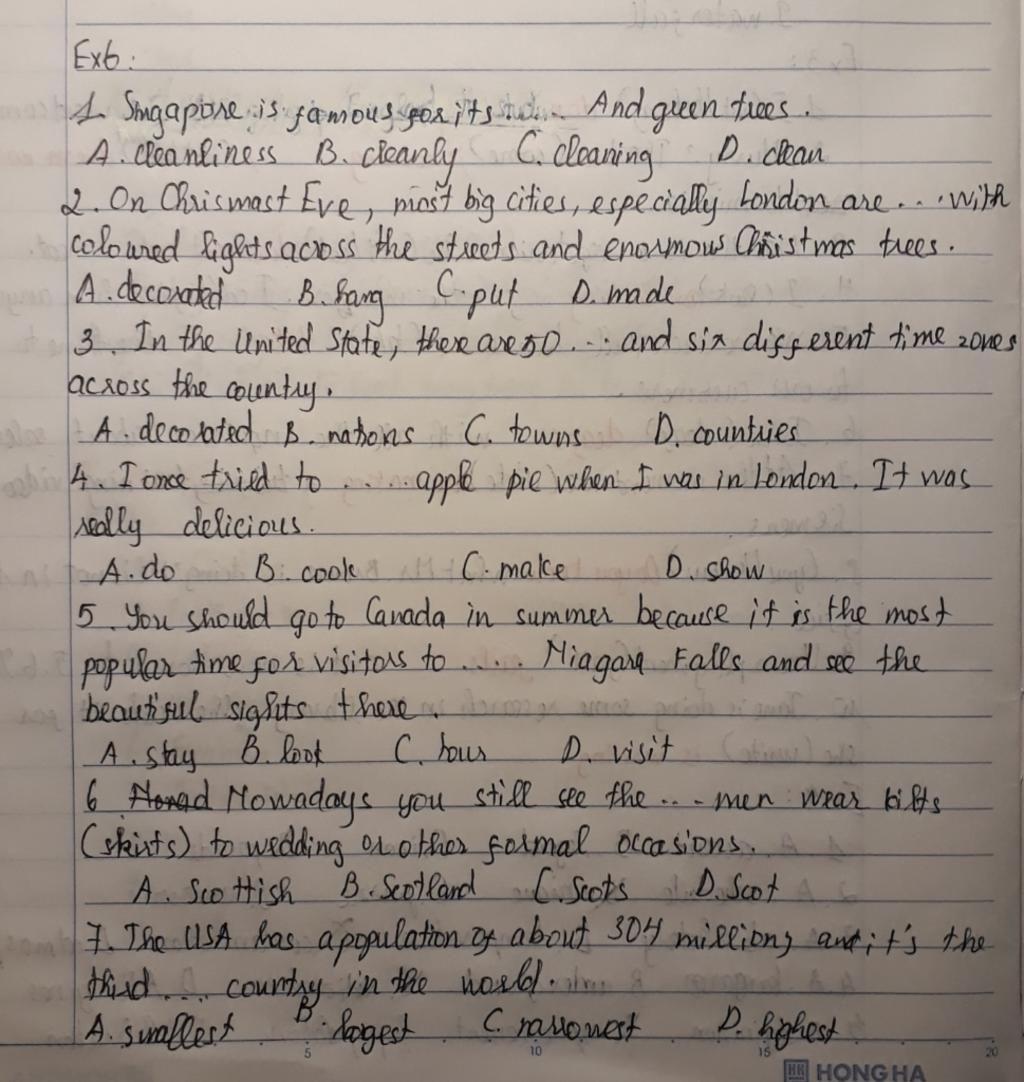 Ex6:
1. Singapore is famous for its .... And green trees.
A. cleanliness B. cleanly C. cleaning D. clean
2. On Chrismast Eve, most big cities, especially London are ... with
coloured lights across the streets and enormous Christmas trees.
A. decorated B. hang C. put D. made
3. In the United State, there are 50 ... and six different time zones
across the country.
A. decorated B. nations C. towns D. countries
4. I once tried to ..... apple pie when I was in London. It was
really delicious.
A. do B. cook C. make D. show
5. You should go to Canada in summer because it is the most
popular time for visitors to ..... Niagara Falls and see the
beautiful sights there.
A. stay B. look C. tour D. visit
6 Nowadays you still see the ... men wear kilts
(skirts) to wedding or other formal occasions.
A. Scottish B. Scotland C. Scots D. Scot
7. The USA has a population of about 304 million, and it's the
third .... country in the world.
A. smallest B. largest C. narrowest D. highest
5 10 15 20
HH HONG HA